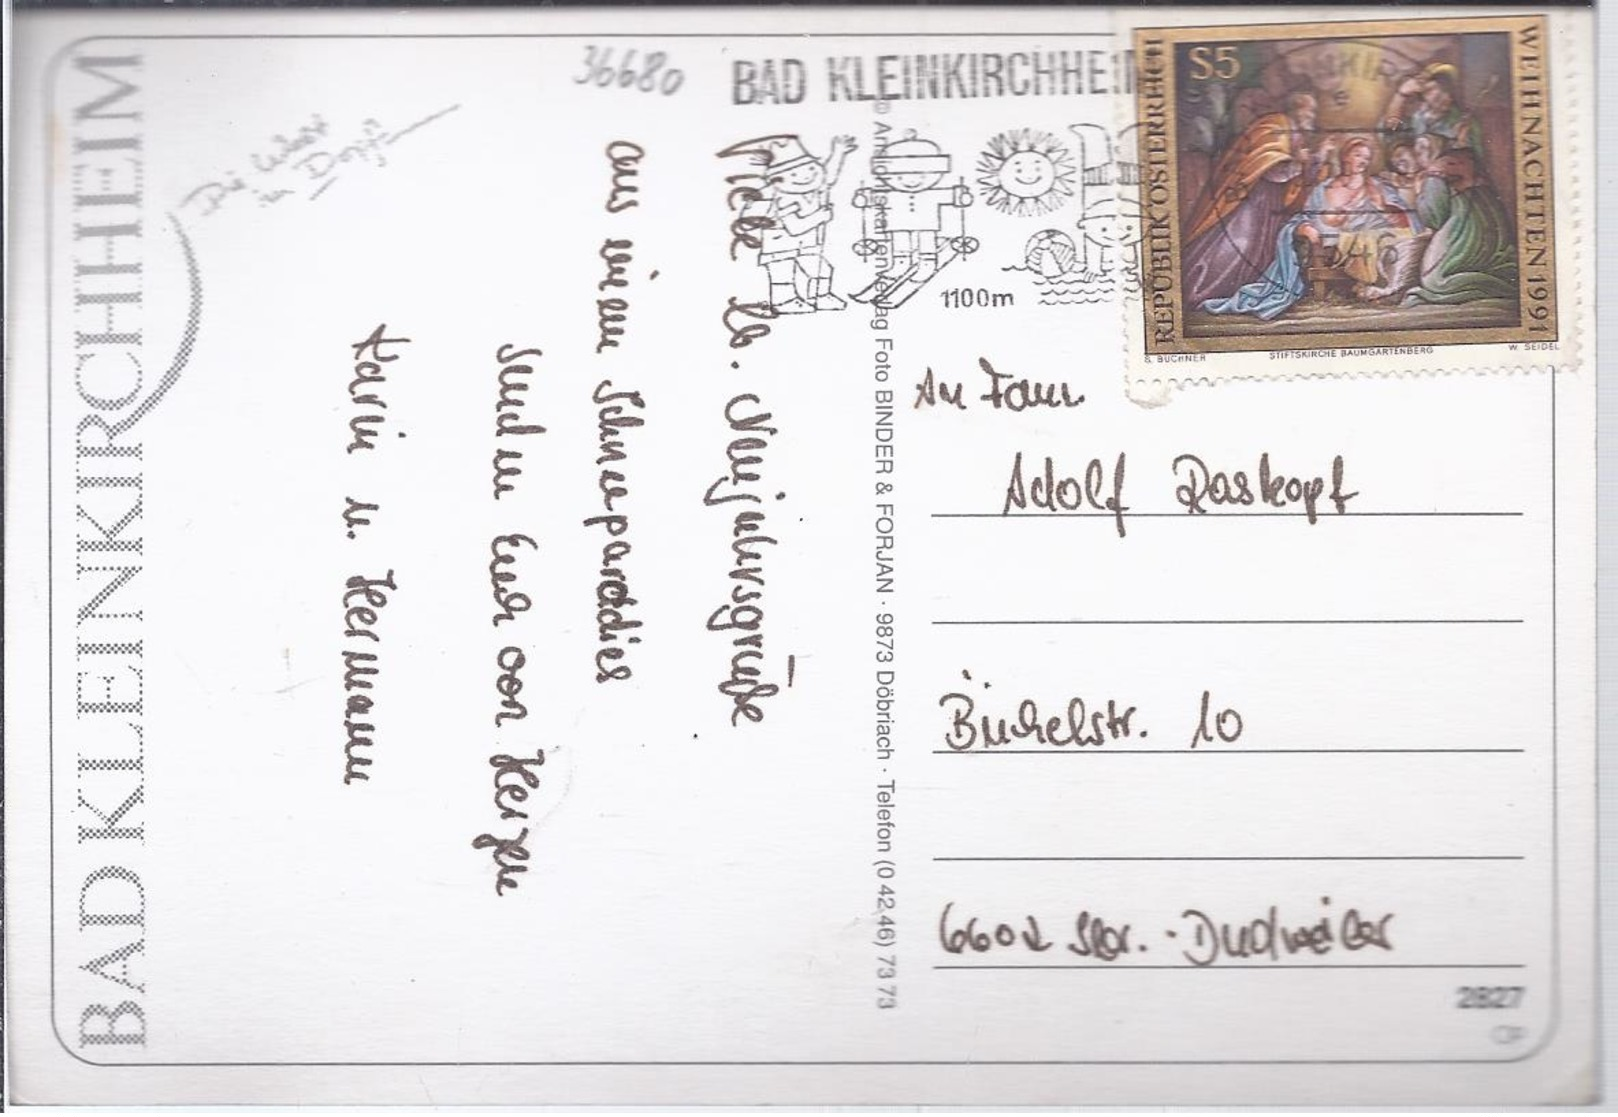 BAD KLEINKIRCHHEIM
36680
Die
in
BAD KLEINKIRCHHEIM
1100m
S5
WEIHNACHTEN 1991
REPUBLIK ÖSTERREICH
9546
S. BUCHNER STIFTSKIRCHE BAUMGARTENBERG W. SEIDEL
Viele lb. Neujahrsgrüße
aus einem Schneeparadies
senden Euch von Herzen
Karin u. Hermann
© Ansichtskartenverlag Foto BINDER & FORJAN · 9873 Döbriach · Telefon (0 42 46) 73 73
An Fam.
Adolf Raskopf
Büchelstr. 10
6602 Sbr. - Dudweiler
2827